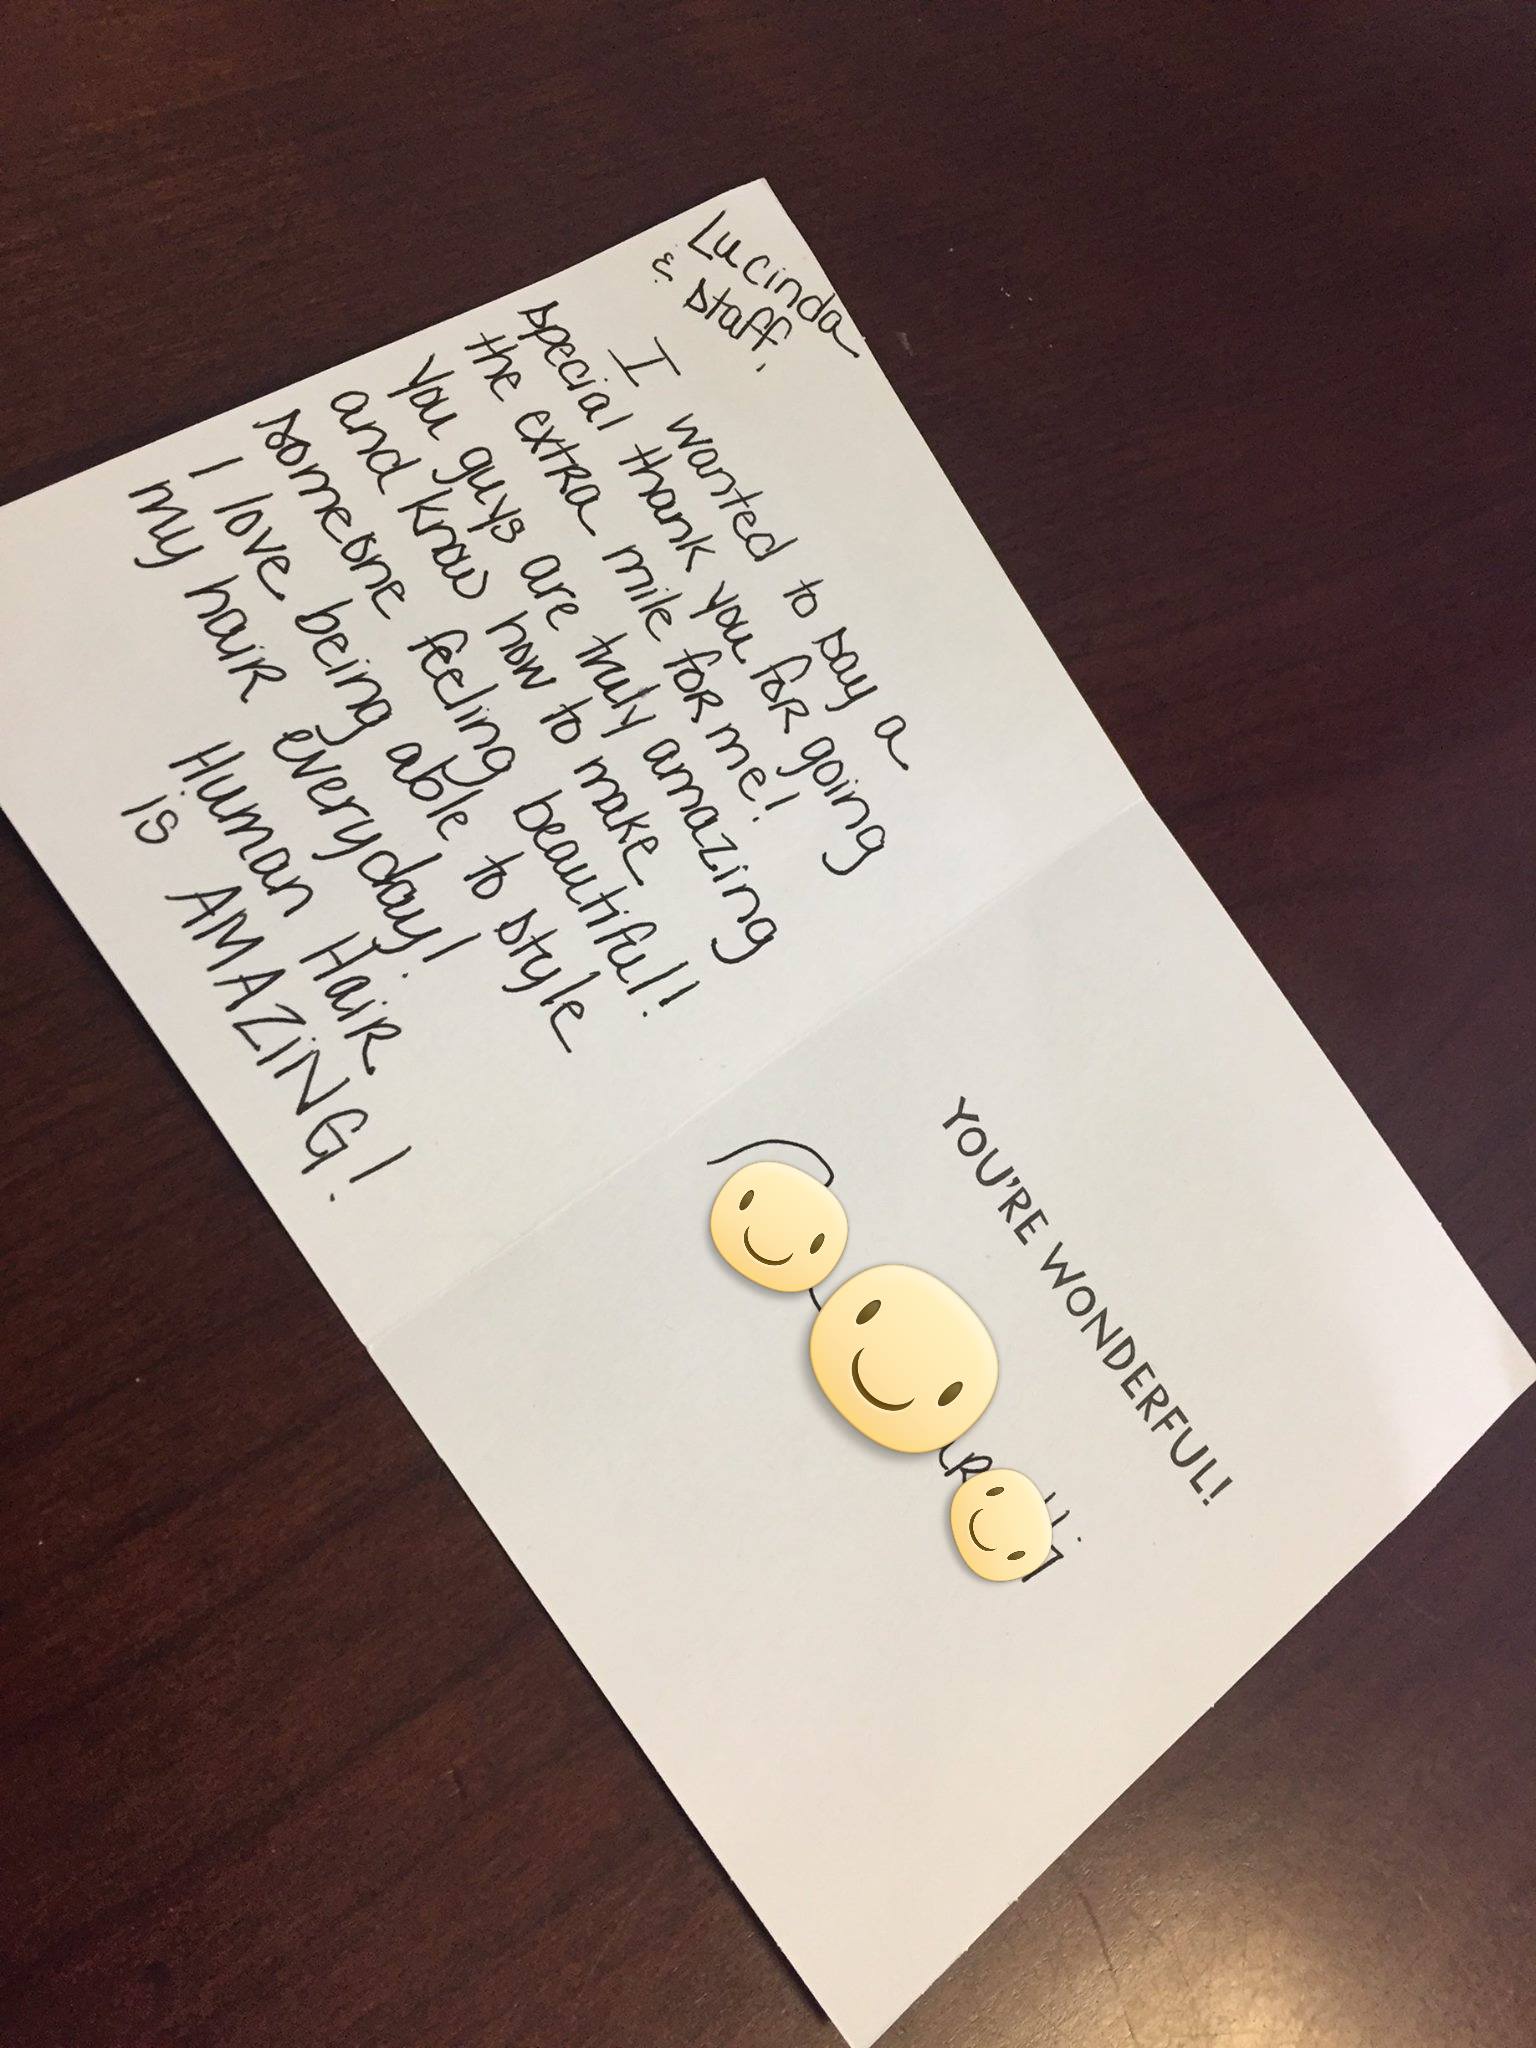 Lucinda
& staff,
I wanted to say a
special thank you for going
the extra mile for me!
You guys are truly amazing
and know how to make
someone feeling beautiful!
I love being able to style
my hair everyday!
Human Hair
is AMAZING!
YOU'RE WONDERFUL!